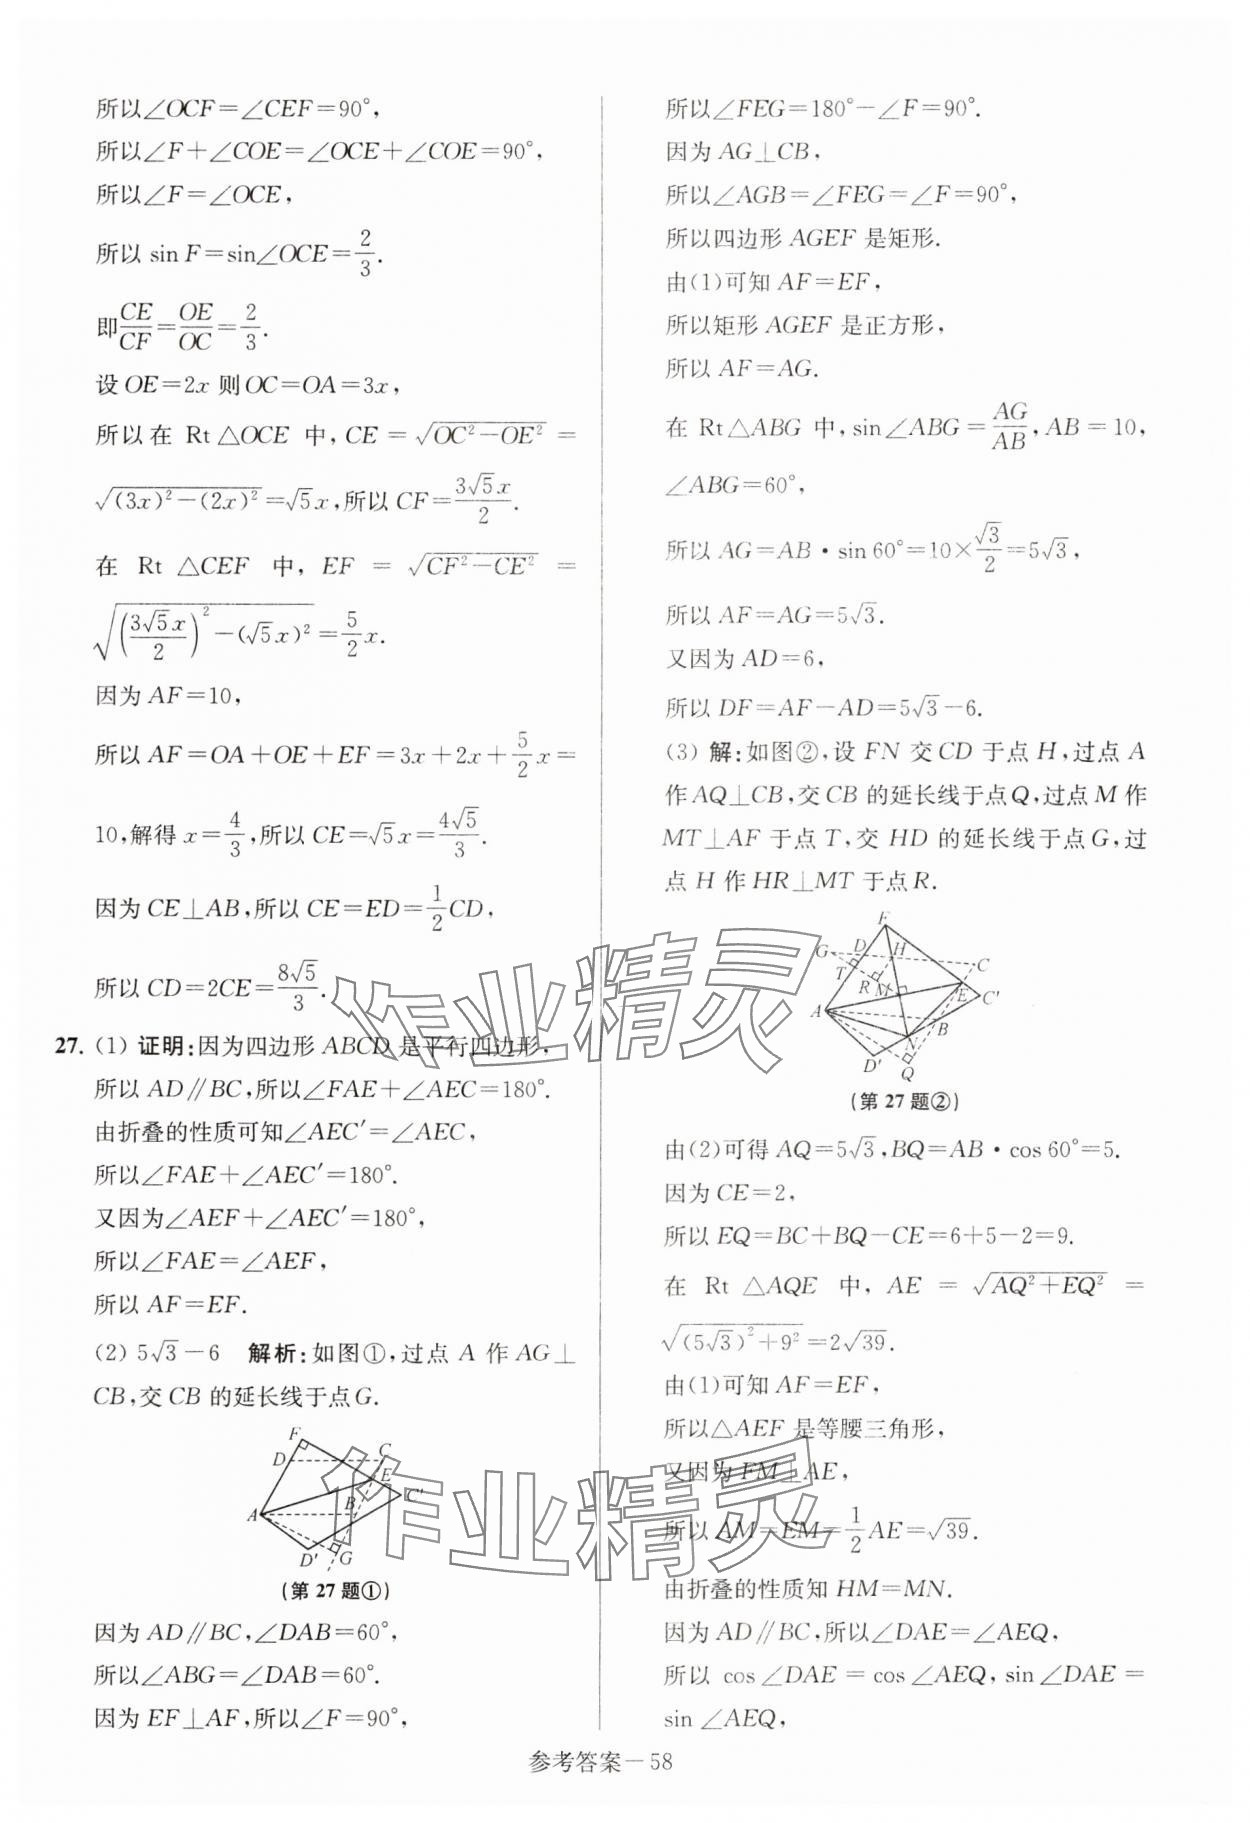 所以∠OCF=∠CEF=90°,
所以∠F+∠COE=∠OCE+∠COE=90°,
所以∠F=∠OCE,
所以 sin F=sin∠OCE=2/3.
即CE/CF=OE/OC=2/3.
设 OE=2x 则 OC=OA=3x,
所以在 Rt △OCE 中, CE=√(OC²-OE²)=
√((3x)²-(2x)²)=√5x,所以 CF=3√5x/2.
在 Rt △CEF 中, EF=√(CF²-CE²)=
√((3√5x/2)²-(√5x)²)=5/2x.
因为 AF=10,
所以 AF=OA+OE+EF=3x+2x+5/2x=
10,解得 x=4/3,所以 CE=√5x=4√5/3.
因为 CE⊥AB,所以 CE=ED=1/2CD,
所以 CD=2CE=8√5/3.
27. (1) 证明:因为四边形 ABCD 是平行四边形,
所以 AD∥BC,所以∠FAE+∠AEC=180°.
由折叠的性质可知∠AEC′=∠AEC,
所以∠FAE+∠AEC′=180°.
又因为∠AEF+∠AEC′=180°,
所以∠FAE=∠AEF,
所以 AF=EF.
(2) 5√3-6 解析:如图①,过点 A 作 AG⊥
CB,交 CB 的延长线于点 G.
F
D
C
E
C′
B
A
D′
G
(第 27 题①)
因为 AD∥BC,∠DAB=60°,
所以∠ABG=∠DAB=60°.
因为 EF⊥AF,所以∠F=90°,
所以∠FEG=180°-∠F=90°.
因为 AG⊥CB,
所以∠AGB=∠FEG=∠F=90°,
所以四边形 AGEF 是矩形.
由(1)可知 AF=EF,
所以矩形 AGEF 是正方形,
所以 AF=AG.
在 Rt△ABG 中,sin∠ABG=AG/AB,AB=10,
∠ABG=60°,
所以 AG=AB·sin 60°=10×√3/2=5√3,
所以 AF=AG=5√3.
又因为 AD=6,
所以 DF=AF-AD=5√3-6.
(3) 解:如图②,设 FN 交 CD 于点 H,过点 A
作 AQ⊥CB,交 CB 的延长线于点 Q,过点 M 作
MT⊥AF 于点 T,交 HD 的延长线于点 G,过
点 H 作 HR⊥MT 于点 R.
F
G
D
H
C
T
R
M
E
C′
A
B
N
D′
Q
(第 27 题②)
由(2)可得 AQ=5√3,BQ=AB·cos 60°=5.
因为 CE=2,
所以 EQ=BC+BQ-CE=6+5-2=9.
在 Rt △AQE 中, AE=√(AQ²+EQ²)=
√((5√3)²+9²)=2√39.
由(1)可知 AF=EF,
所以△AEF 是等腰三角形,
又因为 FM⊥AE,
所以 AM=EM=1/2AE=√39.
由折叠的性质知 HM=MN.
因为 AD∥BC,所以∠DAE=∠AEQ,
所以 cos∠DAE=cos∠AEQ, sin∠DAE=
sin∠AEQ,
参考答案—58
作业精灵
作业精灵